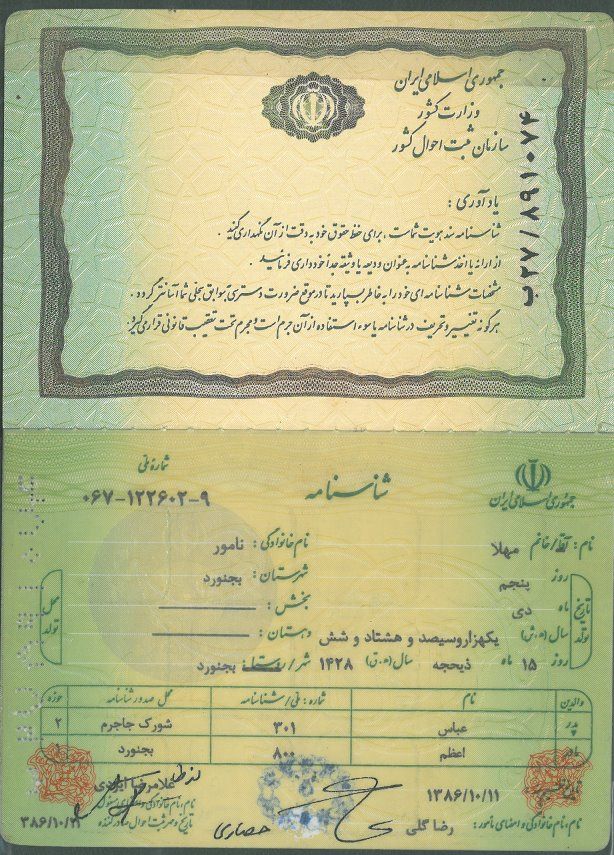 جمهوری اسلامی ایران
وزارت کشور
سازمان ثبت احوال کشور
ب ۲۷/۸۹۱۰۷۴
یادآوری :
شناسنامه سند هویت شماست ، برای حفظ حقوق خود به دقت از آن نگهداری کنید .
از ارائه یا اخذ شناسنامه به عنوان ودیعه یا وثیقه جداً خودداری فرمائید .
مشخصات شناسنامه ای خود را به خاطر بسپارید تا در موقع ضرورت دسترسی به سوابق سجلی شما آسانتر گردد .
هر گونه تغییر و تحریف در شناسنامه یا سوء استفاده از آن جرم است و مجرم تحت تعقیب قانونی قرار می گیرد .
جمهوری اسلامی ایران
شناسنامه
شماره ملی
۰۶۷-۱۲۲۶۰۲-۹
نام : آقا/خانم مهلا نام خانوادگی : نامور
تاریخ تولد
روز پنجم
ماه دی
سال (ه.ش) یکهزاروسیصد و هشتاد و شش
روز ۱۵ ماه ذیحجه سال (ه.ق) ۱۴۲۸
محل تولد
شهرستان : بجنورد
بخش :
دهستان :
شهر/روستا : بجنورد
والدین نام شماره : ملی/شناسنامه محل صدور شناسنامه حوزه
پدر عباس ۳۰۱ شورک جاجرم ۲
مادر اعظم ۸۰۰ بجنورد
۱۳۸۶/۱۰/۱۱
نام،نام خانوادگی و امضای مأمور : رضا گلی
حصاری
غلامرضا ایزدی
نام،نام خانوادگی و امضای مسئول
تاریخ و مهر ثبت احوال صادرکننده